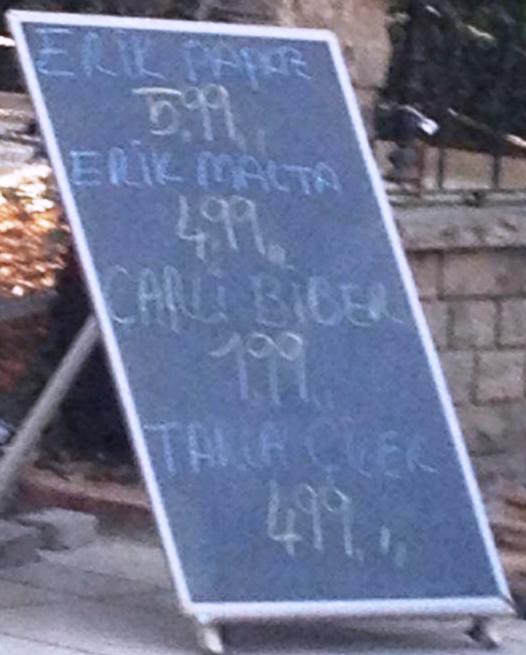 ERİK PAPAZ
5.99
ERİK MALTA
4.99
ÇARLİ BİBER
1.99
TARLA ÇİLEK
4.99